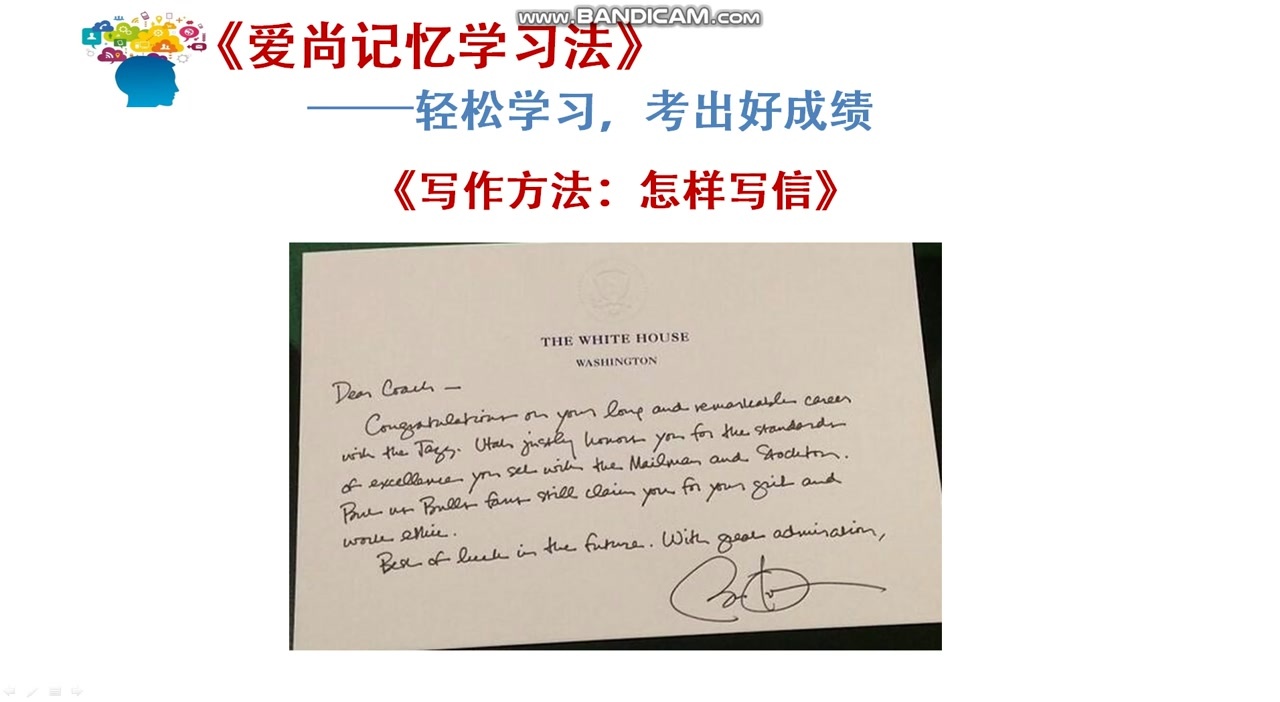 www.BANDICAM.com
《爱尚记忆学习法》
——轻松学习，考出好成绩
《写作方法：怎样写信》
THE WHITE HOUSE
WASHINGTON
Dear Coach —
Congratulations on your long and remarkable career
with the Jazz. Utah justly honors you for the standards
of excellence you set with the Mailman and Stockton.
But us Bulls fans still claim you for your grit and
work ethic.
Best of luck in the future. With great admiration,